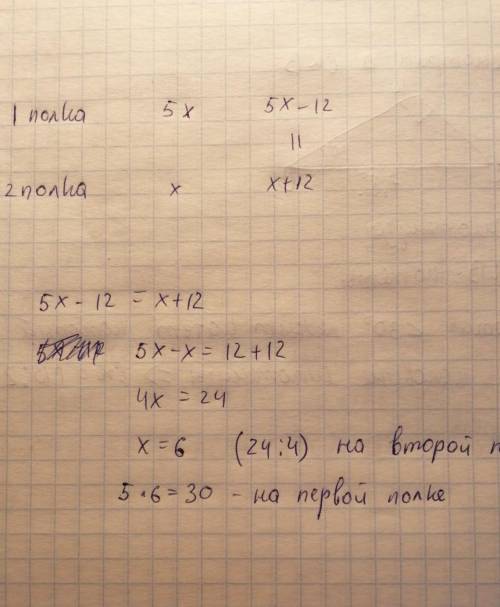 1 полка 5x 5x-12
||
2 полка x x+12
5x - 12 = x+12
5x-x = 12+12
4x = 24
x = 6 (24:4) на второй
5·6=30 - на первой полке